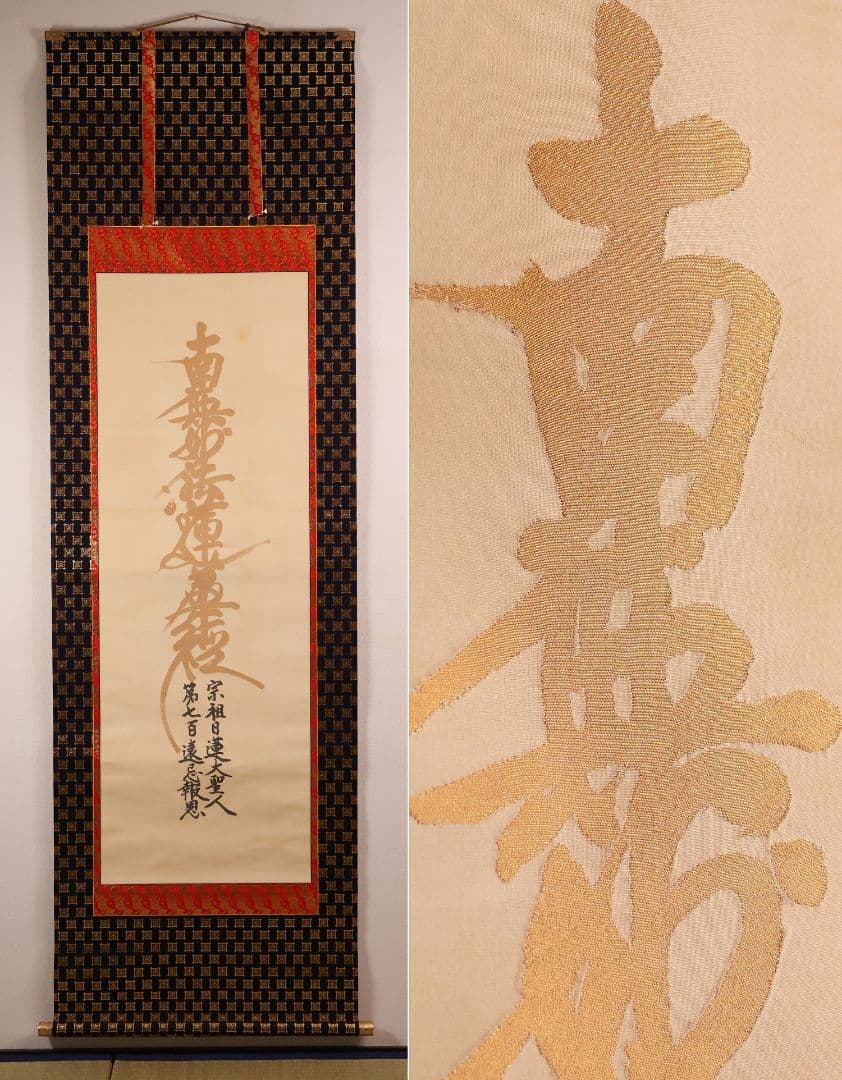 南無妙法蓮華経
宗祖日蓮大聖人
第七百遠忌報恩
南無妙